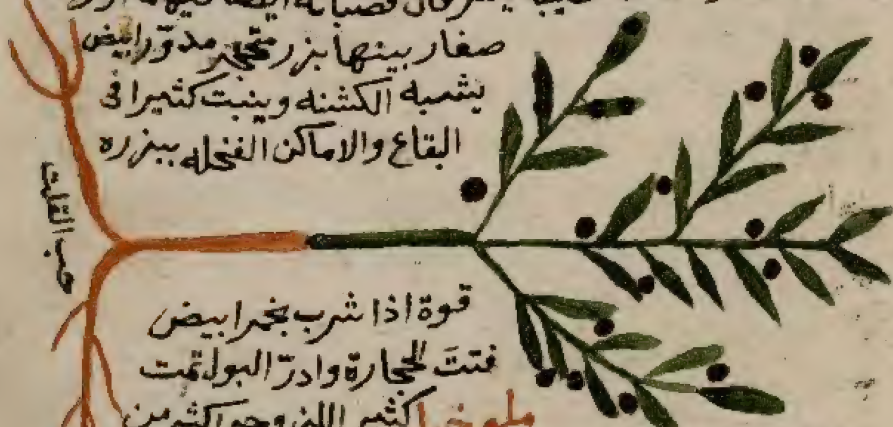 صغار بينها بزر متحجر مدوّر ابيض
يشبه الكشنه وينبت كثيرا فى
البقاع والاماكن الفحله ببزره
حب القلت
قوة اذا شرب بخمر ابيض
فتتَ الحجارة وادرّ البول تمت
كثير اللبن وهو اكثر من